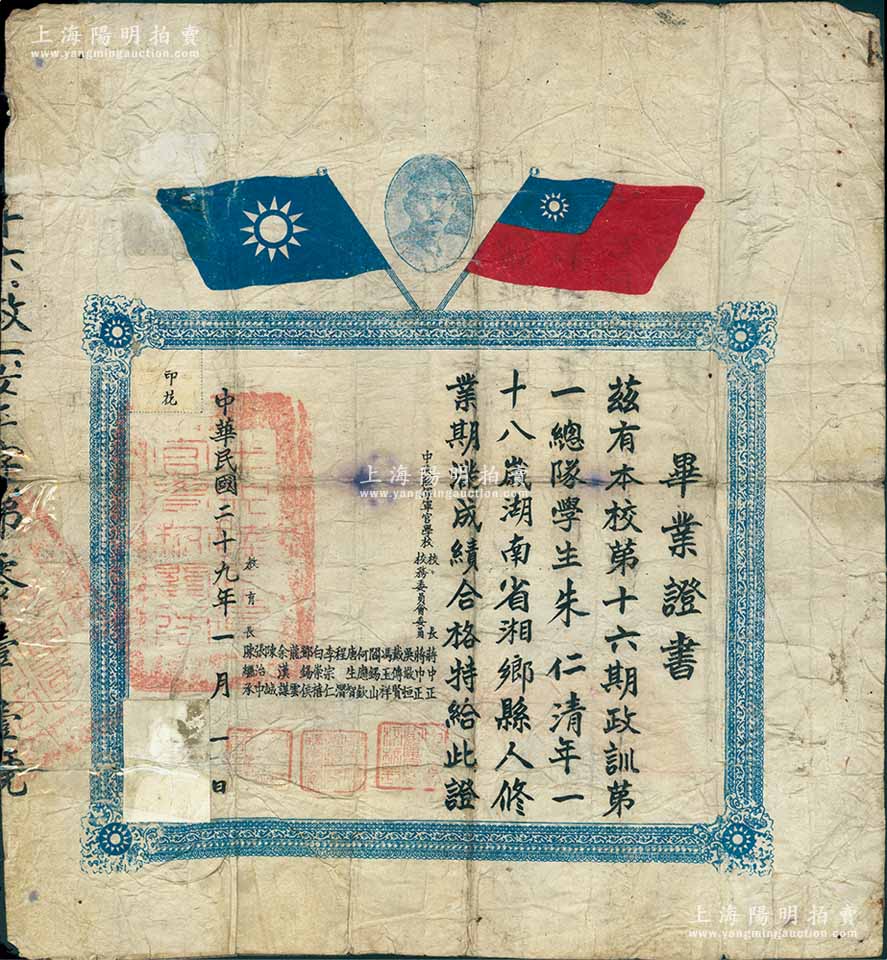 上海陽明拍賣
www.yangmingauction.com
畢業證書
茲有本校第十六期政訓第
一總隊學生朱仁清年一
十八歲湖南省湘鄉縣人修
業期滿成績合格特給此證
軍官學校
校長 蔣中正
校務委員會委員
蔣中正
吳敬恒
戴傳賢
馮玉祥
閻錫山
何應欽
唐生智
程潛
李宗仁
白崇禧
鄧錫侯
龍雲
余漢謀
陳誠
張治中
教育長 陳繼承
中華民國二十九年一月一日
印花
第零壹壹號
上海陽明拍賣
www.yangmingauction.com
上海陽明拍賣
www.yangmingauction.com